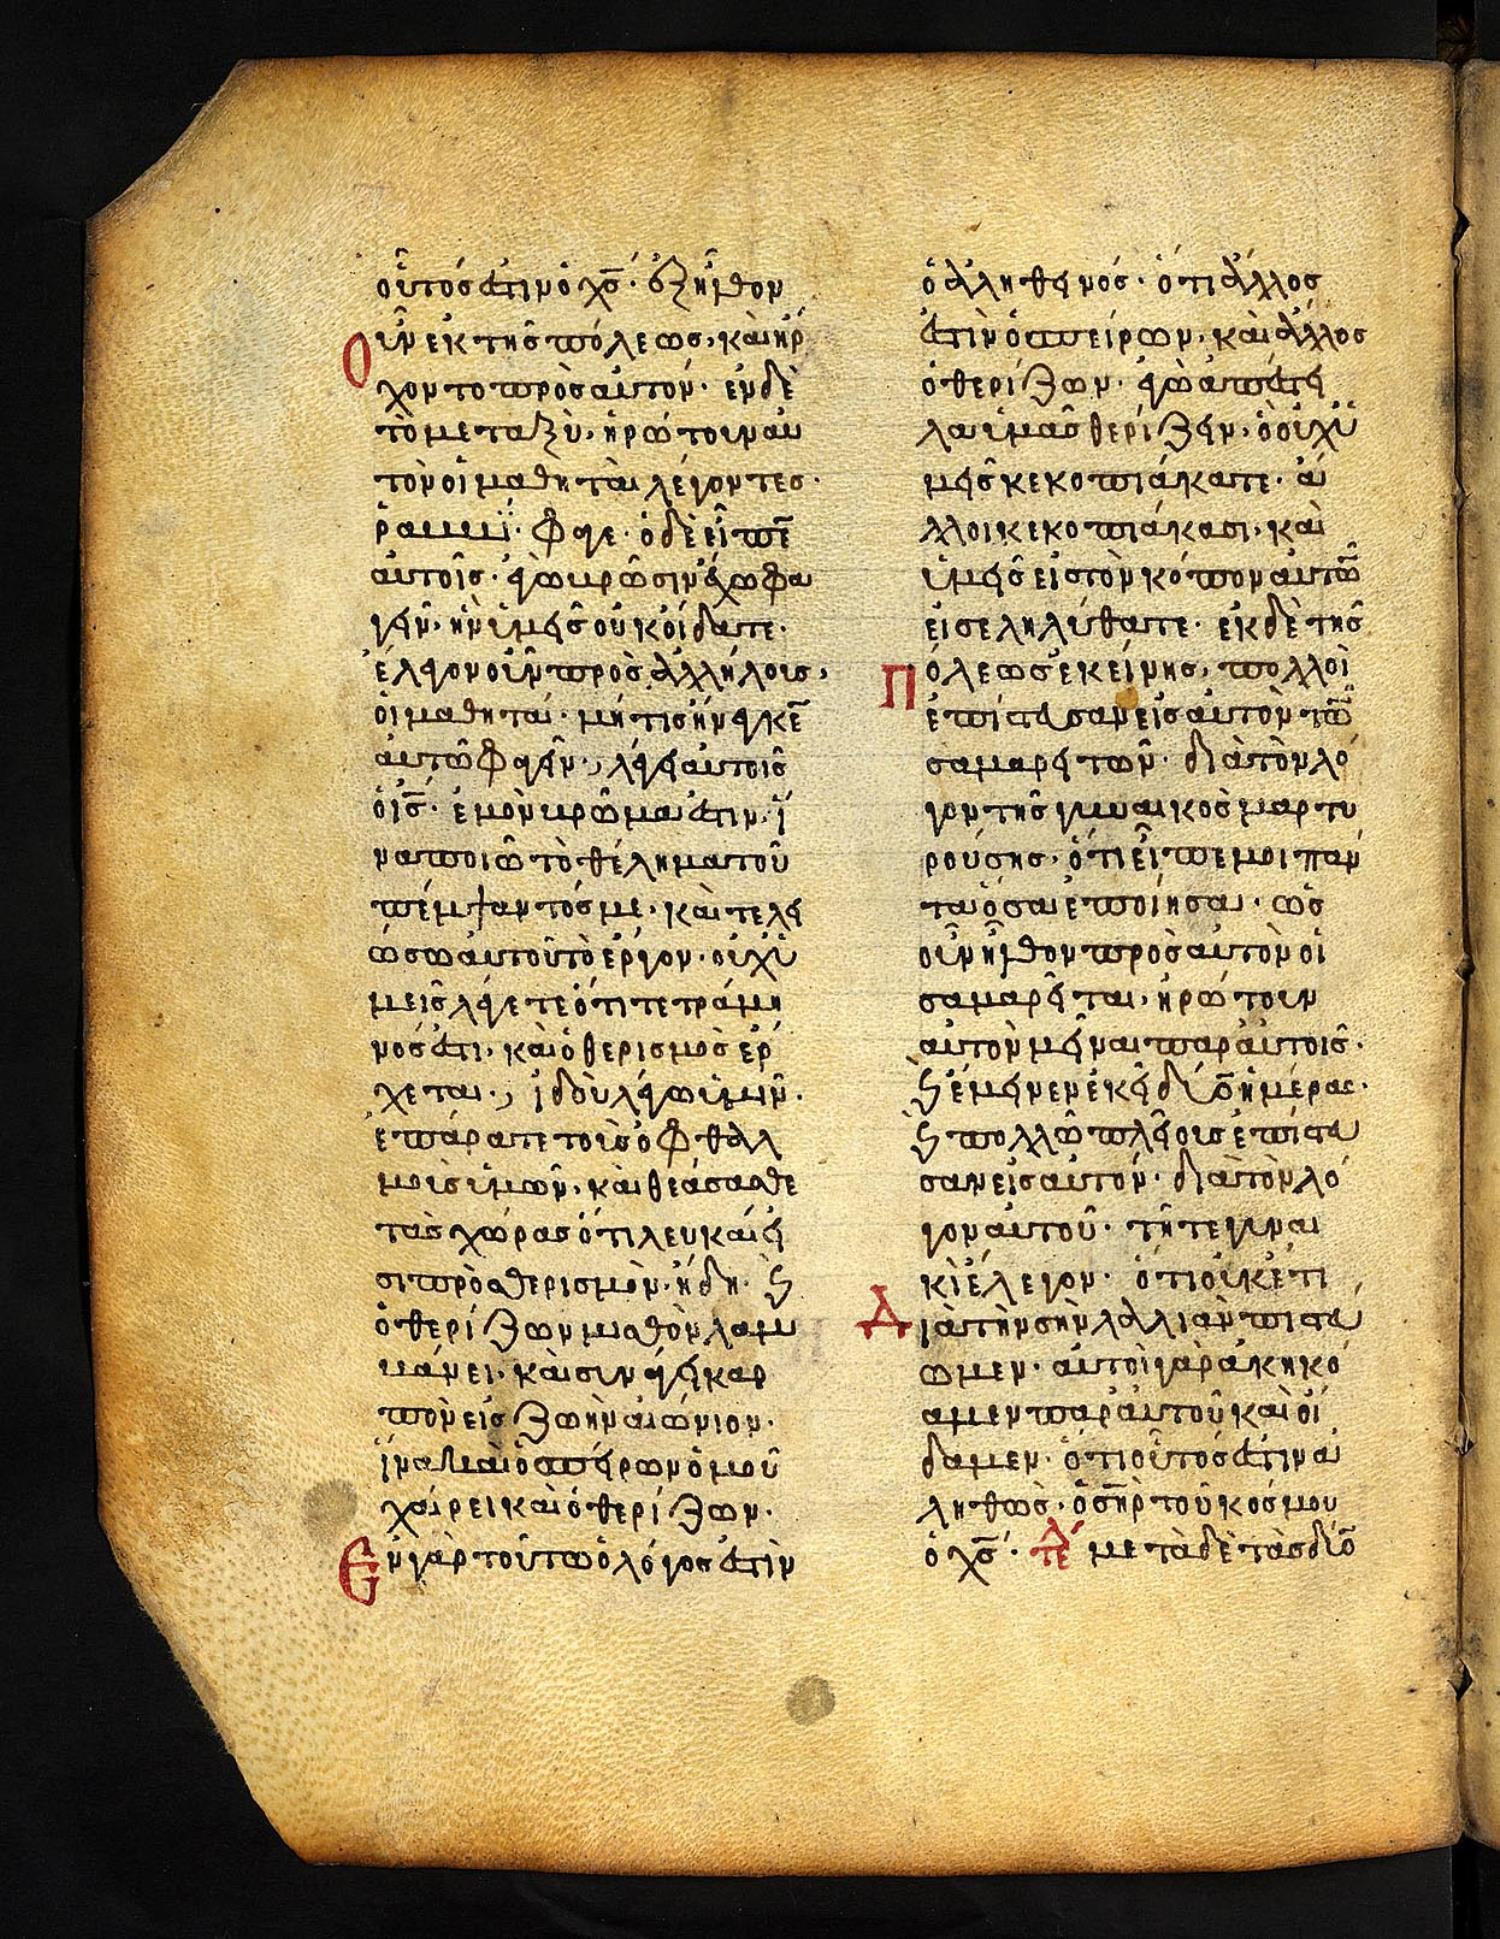 οὗτός ἐστιν ὁ χ̅ς̅· ἐξῆλθον
Οὖν ἐκ τῆς πόλεως, καὶ ἤρ
χοντο πρὸς αὐτόν· ἐν δὲ
τὸ μεταξὺ, ἠρώτουν αὐ
τὸν οἱ μαθηταὶ λέγοντες·
ῥαββὶ· φάγε· ὁ δὲ εἶπε̅
αὐτοῖς· ἐγὼ βρῶσιν ἔχω φα
γεῖν, ἣν ὑμεῖς οὐκ οἴδατε·
ἔλεγον οὖν πρὸς ἀλλήλους,
οἱ μαθηταί· μή τις ἤνεγκε̅
αὐτῶ φαγεῖν·, λέγει αὐτοῖς
ὁ ι̅ς̅· ἐμὸν βρῶμα ἐστιν, ἵ
να ποιῶ τὸ θέλημα τοῦ
πέμψαντός με, καὶ τελει
ώσω αὐτοῦ τὸ ἔργον· οὐχ ὑ
μεῖς λέγετε ὅτι τετράμη
νός ἐστι, καὶ ὁ θερισμὸς ἔρ
χεται·, ἰδοὺ λέγω ὑμῖν·
ἐπάρατε τοὺς ὀφθαλ
μοὺς ὑμῶν, καὶ θεάσασθε
τὰς χώρας ὅτι λευκαί εἰ
σι πρὸς θερισμὸν, ἤδη· ϗ
ὁ θερίζων μισθὸν λαμ
βάνει, καὶ συνάγει καρ
πὸν εἰς ζωὴν αἰώνιον·
ἵνα καὶ ὁ σπείρων ὁμοῦ
χαίρει καὶ ὁ θερίζων·
Ἐν γὰρ τούτω ὁ λόγος ἐστὶν
ὁ ἀληθεινός· ὅτι ἄλλος
ἐστὶν ὁ σπείρων, καὶ ἄλλος
ὁ θερίζων· ἐγὼ ἀπέστει
λα ὑμᾶς θερίζειν, ὃ οὐχ ὑ
μεῖς κεκοπιάκατε· ἄ
λλοι κεκοπιάκασι, καὶ
ὑμεῖς εἰς τὸν κόπον αὐτῶ̅
εἰσεληλύθατε· ἐκ δὲ τῆς
Πόλεως ἐκείνης, πολλοὶ
ἐπίστευσαν εἰς αὐτὸν τῶ̅
σαμαρειτῶν· διὰ τὸν λό
γον τῆς γυναικὸς μαρτυ
ρούσης, ὅτι εἶπε μοι πάν
τα ὅσα ἐποίησα· ὡς
οὖν ἦλθον πρὸς αὐτὸν οἱ
σαμαρεῖται, ἠρώτουν
αὐτὸν μεῖναι παρ αὐτοῖς·
ϗ ἔμεινεν ἐκεῖ δύο ἡμέρας·
ϗ πολλῶ πλεῖους ἐπίστευ
σαν εἰς αὐτόν· διὰ τὸν λό
γον αὐτοῦ· τῆ τε γυναι
κὶ ἔλεγον· ὅτι οὐκέτι
Διὰ τὴν σὴν λαλιὰν πιστεύ
ωμεν· αὐτοὶ γὰρ ἀκηκό
αμεν παρ αὐτοῦ καὶ οἴ
δαμεν· ὅτι οὗτός ἐστιν ἀ
ληθῶς, ὁ σ̅η̅ρ̅ τοῦ κόσμου
ὁ χ̅ς̅· τέλ μετὰ δὲ τὰς δύο